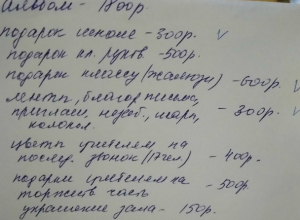 Альбом - 1700р.
подарок школе - 300р. V
подарок кл. руков. - 500р.
подарок классу (жалюзи) - 600р. V
ленты, благод. письма,
пригласи, , шары, - 300р. V
колокол.
цветы учителям на
послед. звонок (17чел) - 400р.
подарки учителям на
торжеств. часть - 500р.
украшение зала - 150р.